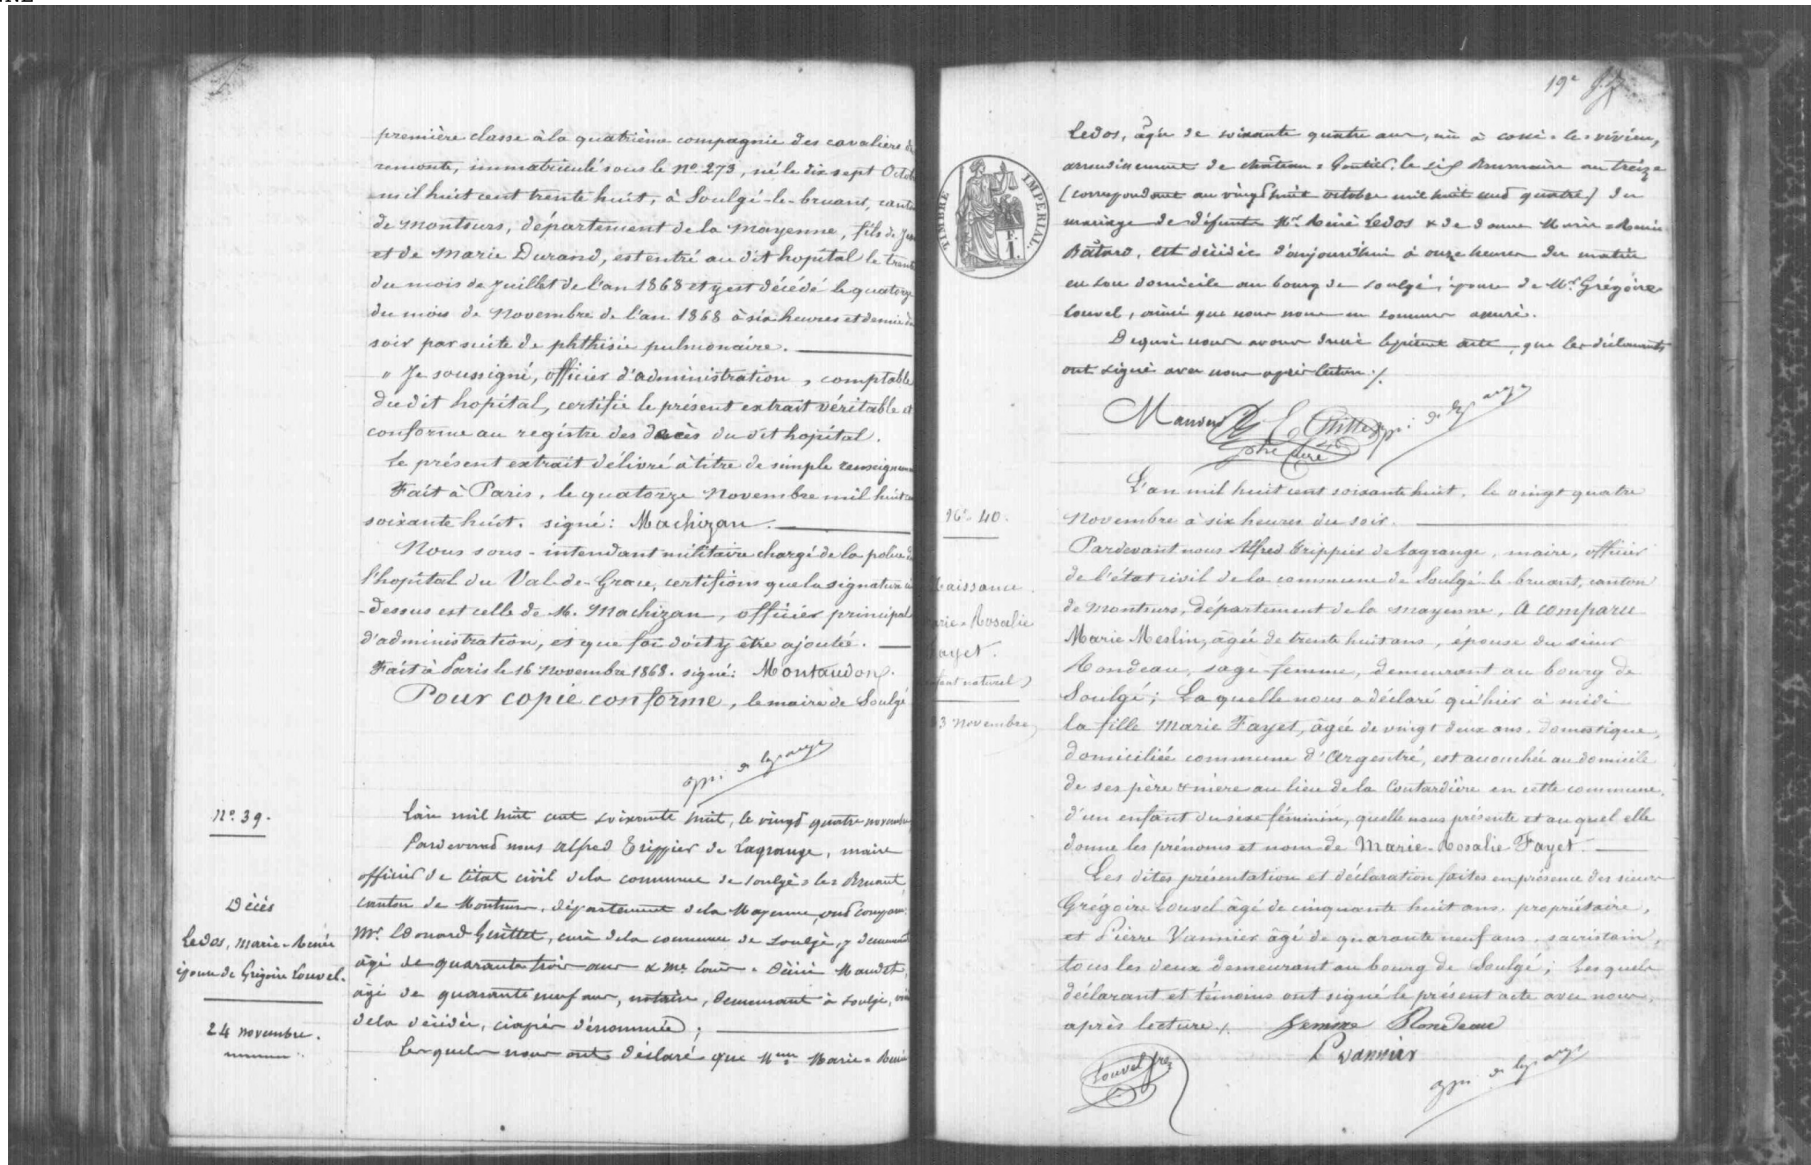 première classe à la quatrième compagnie des cavaliers de
remonte, immatriculé sous le No. 273, né le dix sept Octob
mil huit cent trente huit, à Soulgé-le-bruant, canton
de Montsurs, département de la Mayenne, fils de
et de Marie Durand, est entré au dit hopital le trente
du mois de Juillet de l'an 1868 et y est décédé le quatorze
du mois de Novembre de l'an 1868 à six heures et demie du
soir par suite de phthisie pulmonaire.
" Je soussigné, officier d'administration, comptable
du dit hopital, certifie le présent extrait véritable et
conforme au registre des décès du dit hopital.
Le présent extrait délivré à titre de simple renseignement
Fait à Paris, le quatorze Novembre mil huit cent
soixante huit. signé: Machizan.
Nous sous-intendant militaire chargé de la police de
l'hopital du Val-de-Grace, certifions que la signature ci
-dessus est celle de M. Machizan, officier principal
d'administration, et que foi doit y être ajoutée.
Fait à Paris le 16 Novembre 1868. signé: Montaudon.
Pour copie conforme, le maire de Soulgé
No. 39.
Décès
Ledos, Marie-Renée
épouse de Grégoire Louvel.
24 novembre.
L'an mil huit cent soixante huit, le vingt quatre novembre
Pardevant nous Alfred Grippier de Lagrange, maire
officier de l'état civil de la commune de Soulgé-le-Bruant,
canton de Montsurs, département de la Mayenne, ont comparu
Mr. Edouard Guittet, curé de la commune de Soulgé, y demeurant
âgé de quarante trois ans & Mr. Louis-Désiré Maudet,
âgé de quarante neuf ans, notaire, demeurant à Soulgé,
de la décédée, ciaprès dénommée;
Lesquels nous ont déclaré que Mme Marie-Renée
19e
Ledos, âgée de soixante quatre ans, née à Cossé-le-vivien,
arrondissement de Château-Gontier, le six Brumaire an treize
(correspondant au vingt huit octobre mil huit cent quatre) du
mariage de défunts Mr. René Ledos & de dame Marie-Renée
Bâtard, est décédée d'aujourd'hui à onze heures du matin
en son domicile au bourg de Soulgé, épouse de Mr. Grégoire
Louvel, ainsi que nous nous en sommes assuré.
De quoi nous avons dressé le présent acte, que les déclarants
ont signé avec nous après lecture./.
TIMBRE IMPERIAL.
No. 40.
Naissance
Marie-Rosalie
Fayet.
(enfant naturel)
23 novembre
L'an mil huit cent soixante huit, le vingt quatre
Novembre à six heures du soir.
Pardevant nous Alfred Grippier de Lagrange, maire, officier
de l'état civil de la commune de Soulgé-le-bruant, canton
de Montsurs, département de la Mayenne, a comparu
Marie Meslin, âgée de trente huit ans, épouse du sieur
Rondeau, sage-femme, demeurant au bourg de
Soulgé; La quelle nous a déclaré qu'hier à midi
la fille Marie Fayet, âgée de vingt deux ans, domestique,
domiciliée commune d'Argentré, est accouchée au domicile
de ses père & mère au lieu de la Coutardière en cette commune,
d'un enfant du sexe féminin, quelle nous présente et au quel elle
donne les prénoms et nom de Marie-Rosalie Fayet.
Les dites présentation et déclaration faites en présence des sieurs
Grégoire Louvel âgé de cinquante huit ans, propriétaire,
et Pierre Vannier âgé de quarante neuf ans, sacristain,
tous les deux demeurant au bourg de Soulgé; Les quels
déclarant et témoins ont signé le présent acte avec nous,
après lecture./. femme Rondeau
P Vannier
Louvel